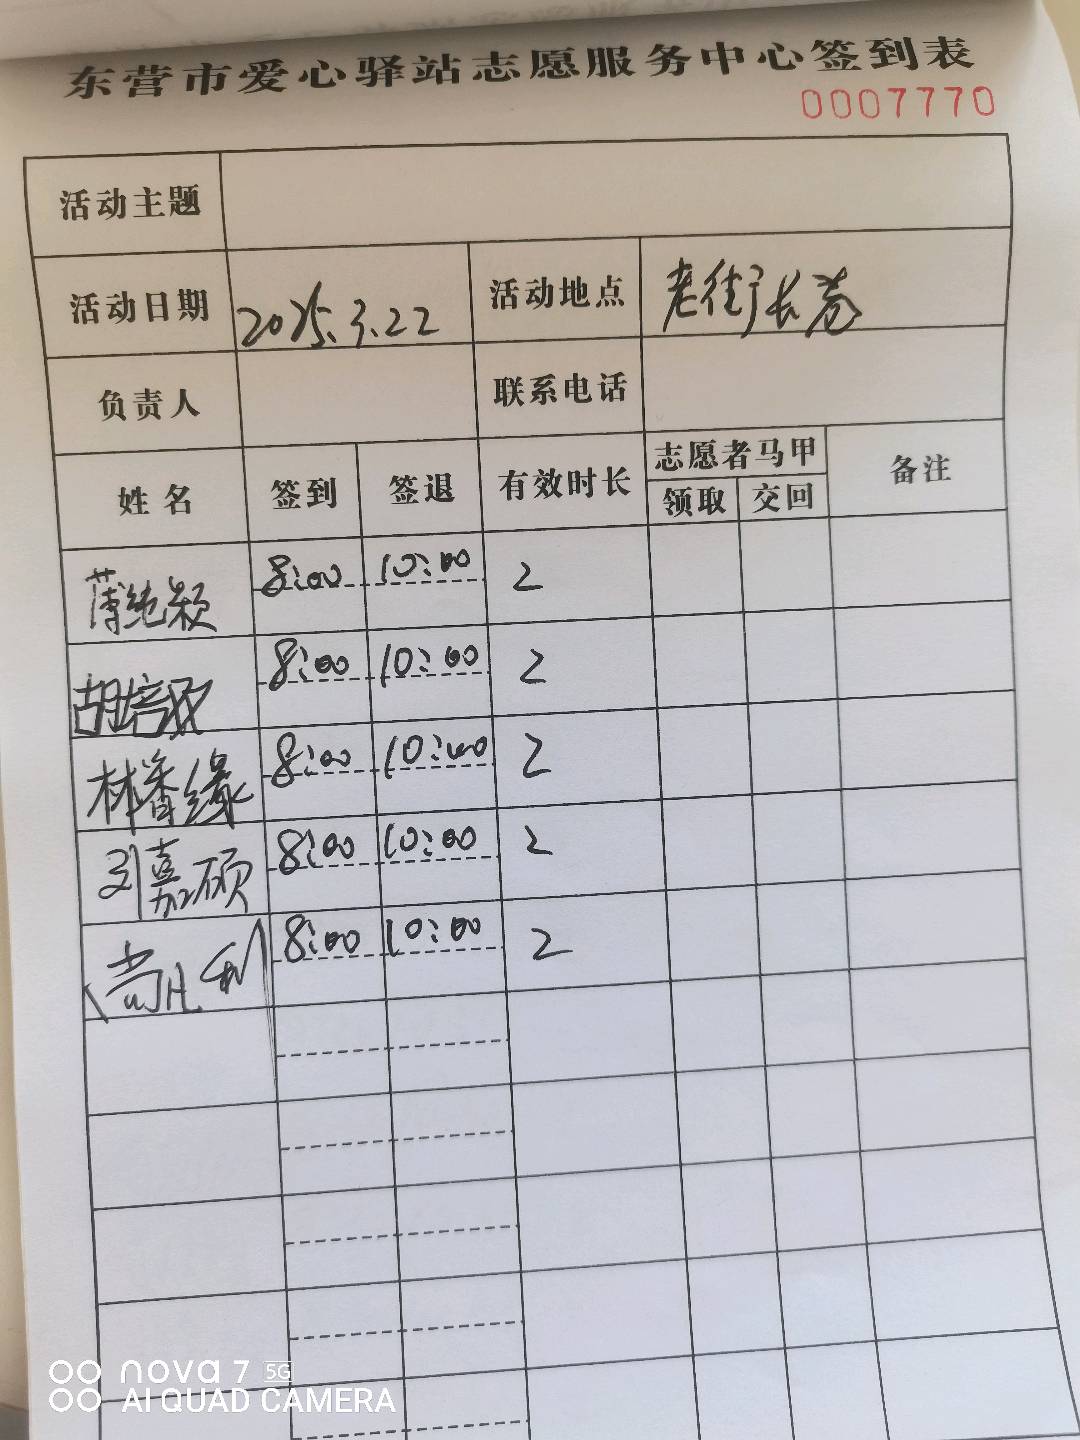 东营市爱心驿站志愿服务中心签到表
0007770
活动主题
活动日期 2025.3.22 活动地点 老街长卷
负责人 联系电话
姓名 签到 签退 有效时长 志愿者马甲 备注
领取 交回
薄纯颖 8:00 10:00 2
胡培 8:00 10:00 2
林香缘 8:00 10:00 2
刘嘉硕 8:00 10:00 2
8:00 10:00 2
nova 7 5G
AI QUAD CAMERA